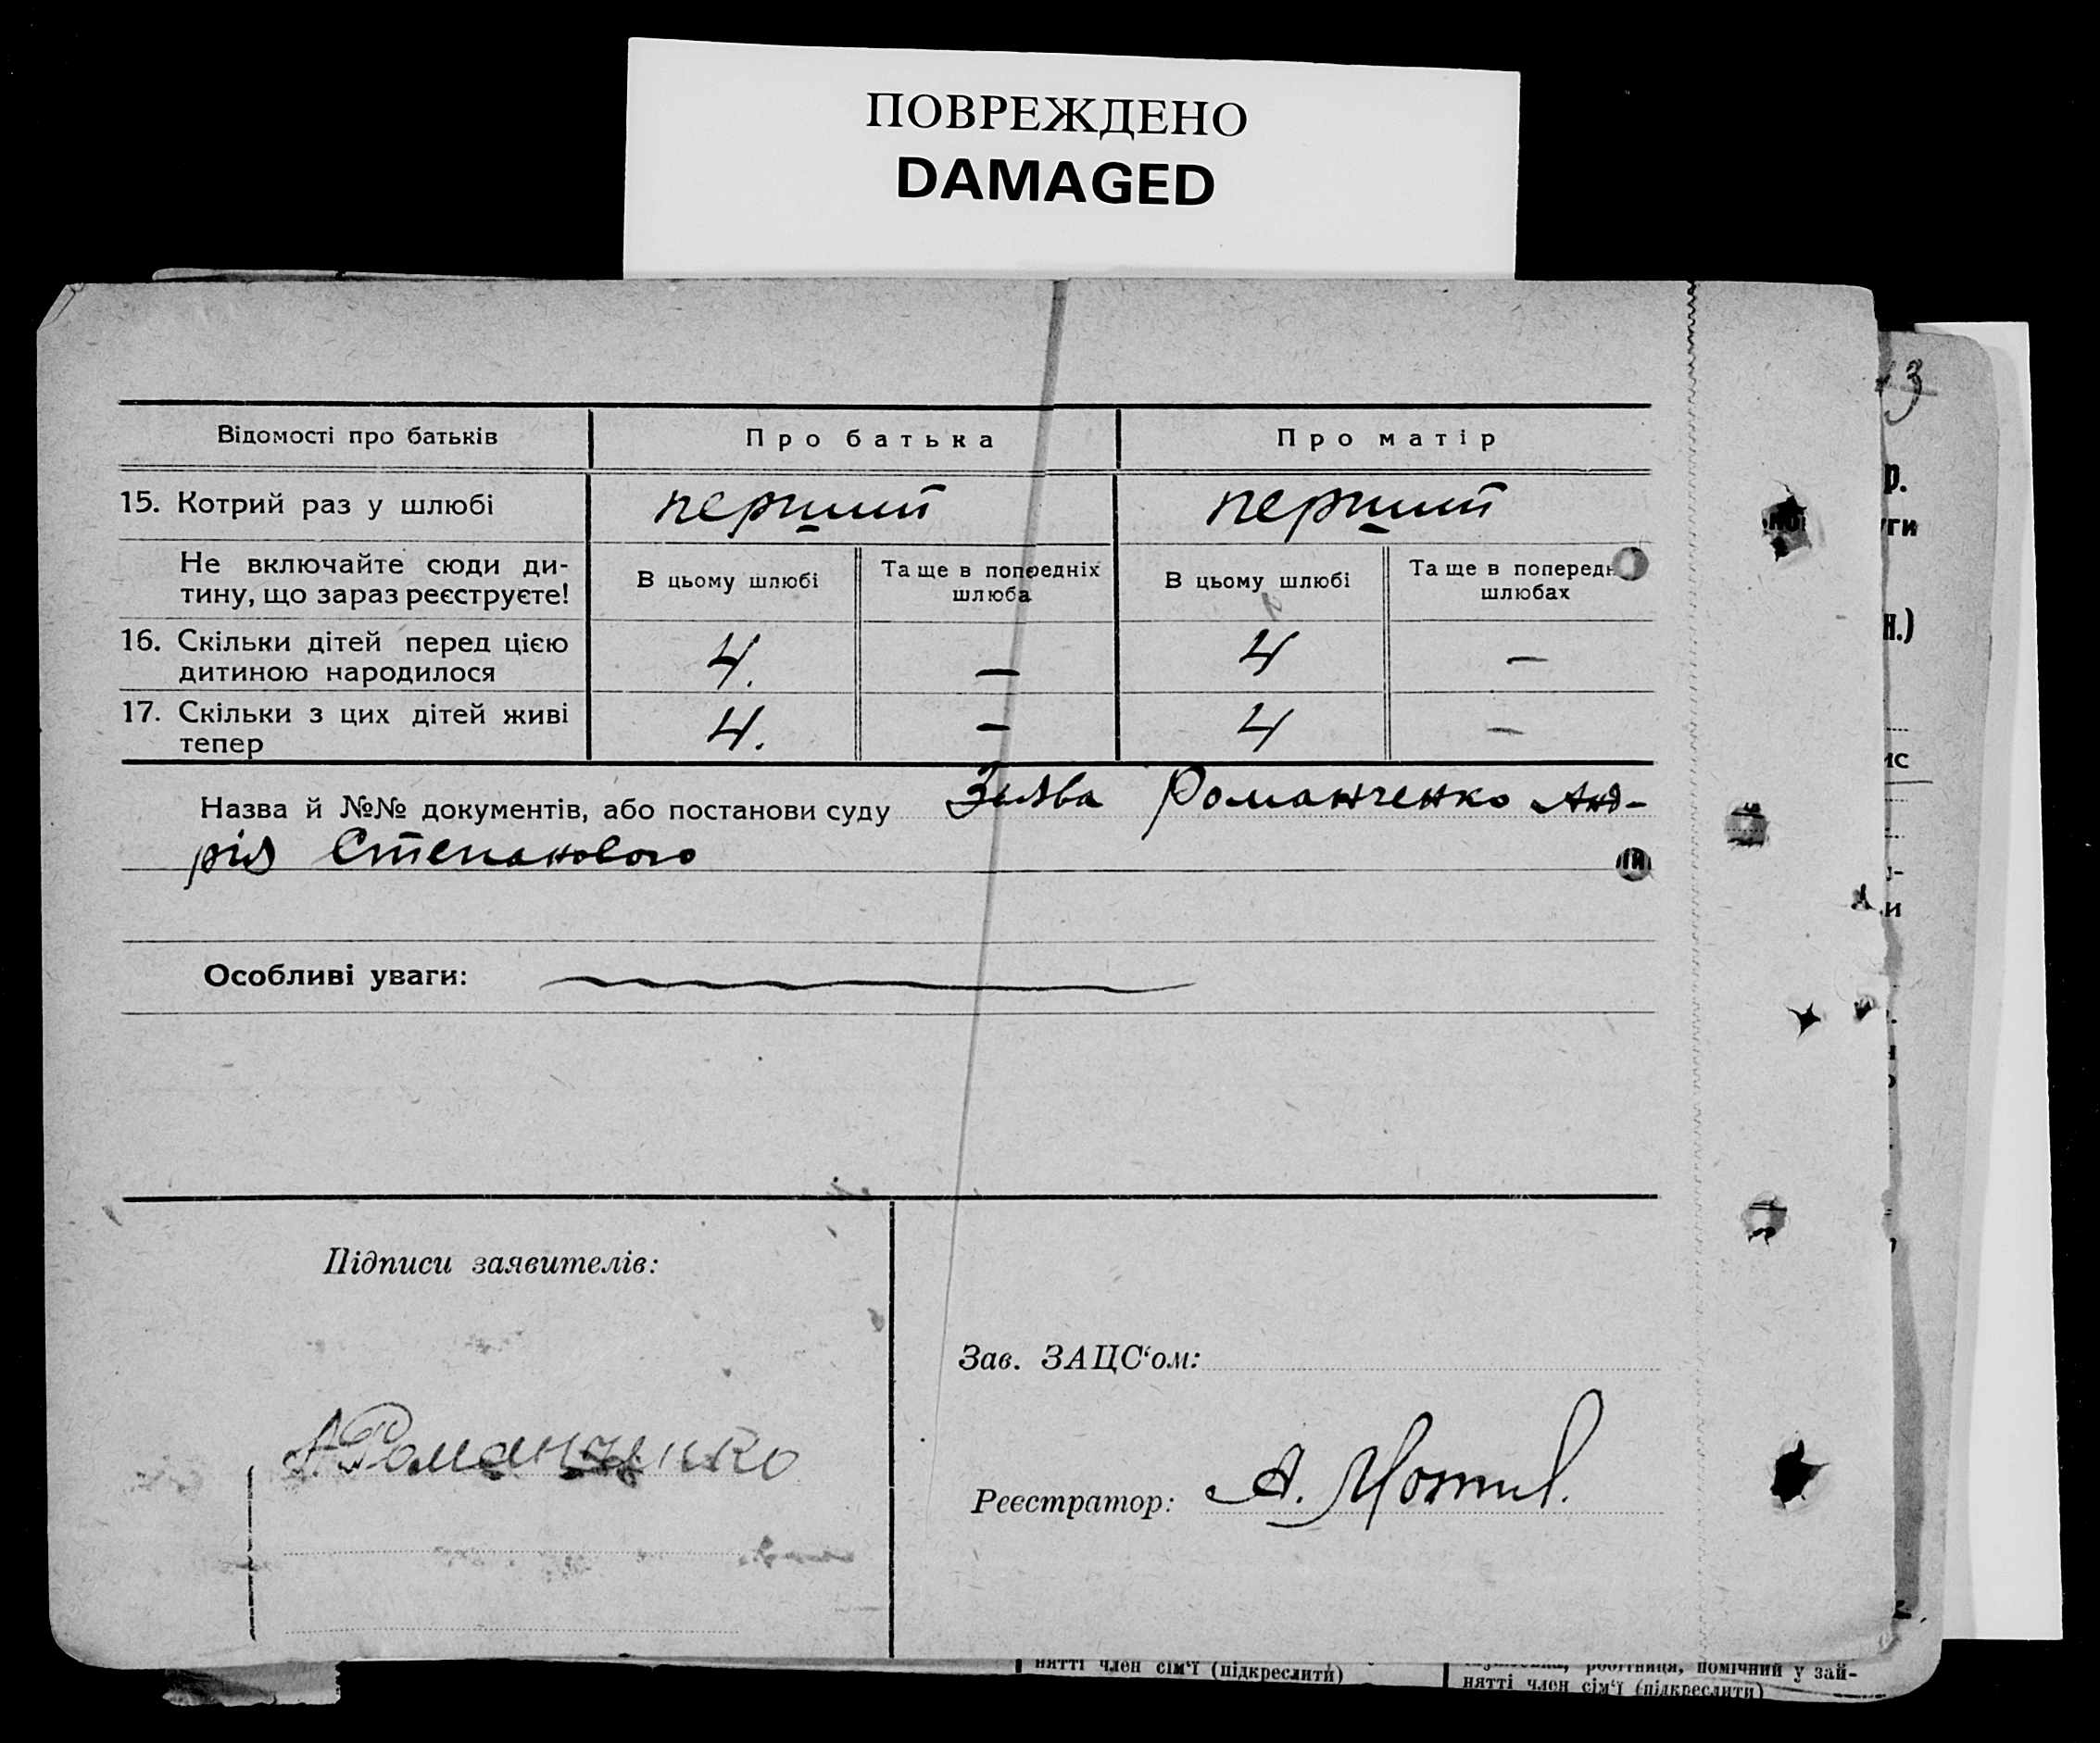 ПОВРЕЖДЕНО
DAMAGED
Відомості про батьків
Про батька
Про матір
15. Котрий раз у шлюбі
перший
перший
Не включайте сюди ди-
тину, що зараз реєструєте!
В цьому шлюбі
Та ще в попередніх
шлюба
В цьому шлюбі
Та ще в попередн
шлюбах
16. Скільки дітей перед цією
дитиною народилося
4.
—
4
—
17. Скільки з цих дітей живі
тепер
4.
—
4
—
Назва й №№ документів, або постанови суду Заява Романченко Анд-
рія Степанового
Особливі уваги:
Підписи заявителів:
А. Романченко
Зав. ЗАЦС‘ом:
Реєстратор: А.
3
р.
ги
н.)
ис
и
нятті член сім‘ї (підкреслити)
робітниця, помічний у зай-
нятті член сім‘ї (підкреслити)